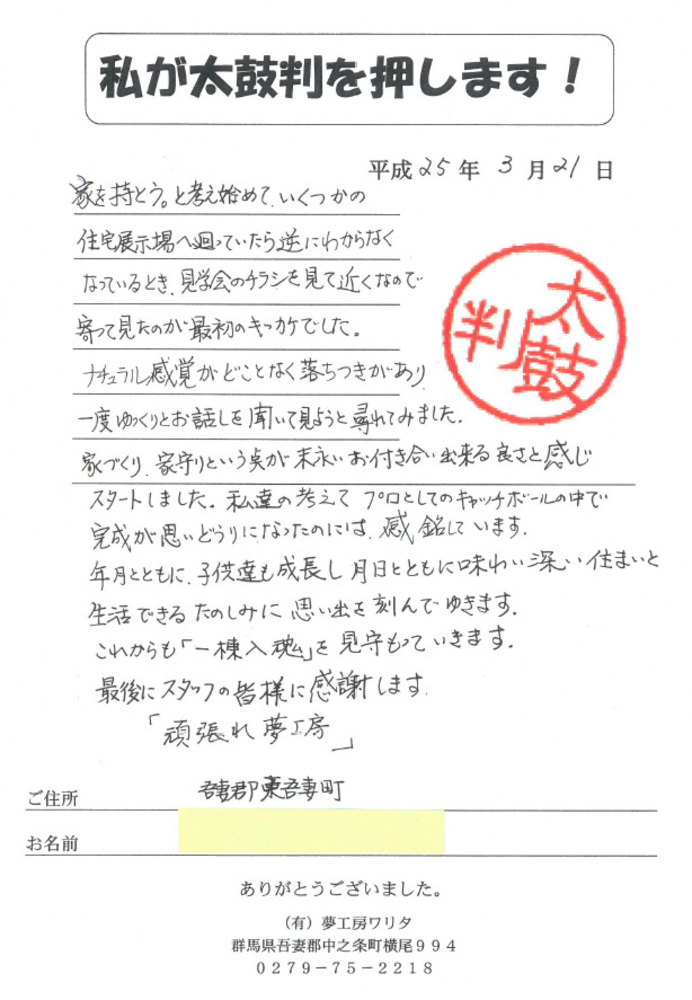 私が太鼓判を押します！
平成25年3月21日
家を持とう。と考え始めて、いくつかの
住宅展示場へ廻っていたら逆にわからなく
なっているとき、見学会のチラシを見て近くなので
寄って見たのが最初のキッカケでした。
ナチュラル感覚がどことなく落ちつきがあり、
一度ゆっくりとお話しを聞いて見ようと尋れてみました.
太鼓判
家づくり、家守りという点が末永いお付き合い出来る良さと感じ
スタートしました。私達の考えて プロとしてのキャッチボールの中で
完成が思いどうりになったのには、感銘しています.
年月とともに、子供達も成長し 月日とともに味わい深い住まいと
生活できるたのしみに 思い出を刻んでゆきます.
これからも「一棟入魂」を 見守もっていきます.
最後にスタッフの皆様に感謝します.
「頑張れ 夢工房」
ご住所 吾妻郡東吾妻町
お名前
ありがとうございました。
（有）夢工房ワリタ
群馬県吾妻郡中之条町横尾９９４
０２７９－７５－２２１８